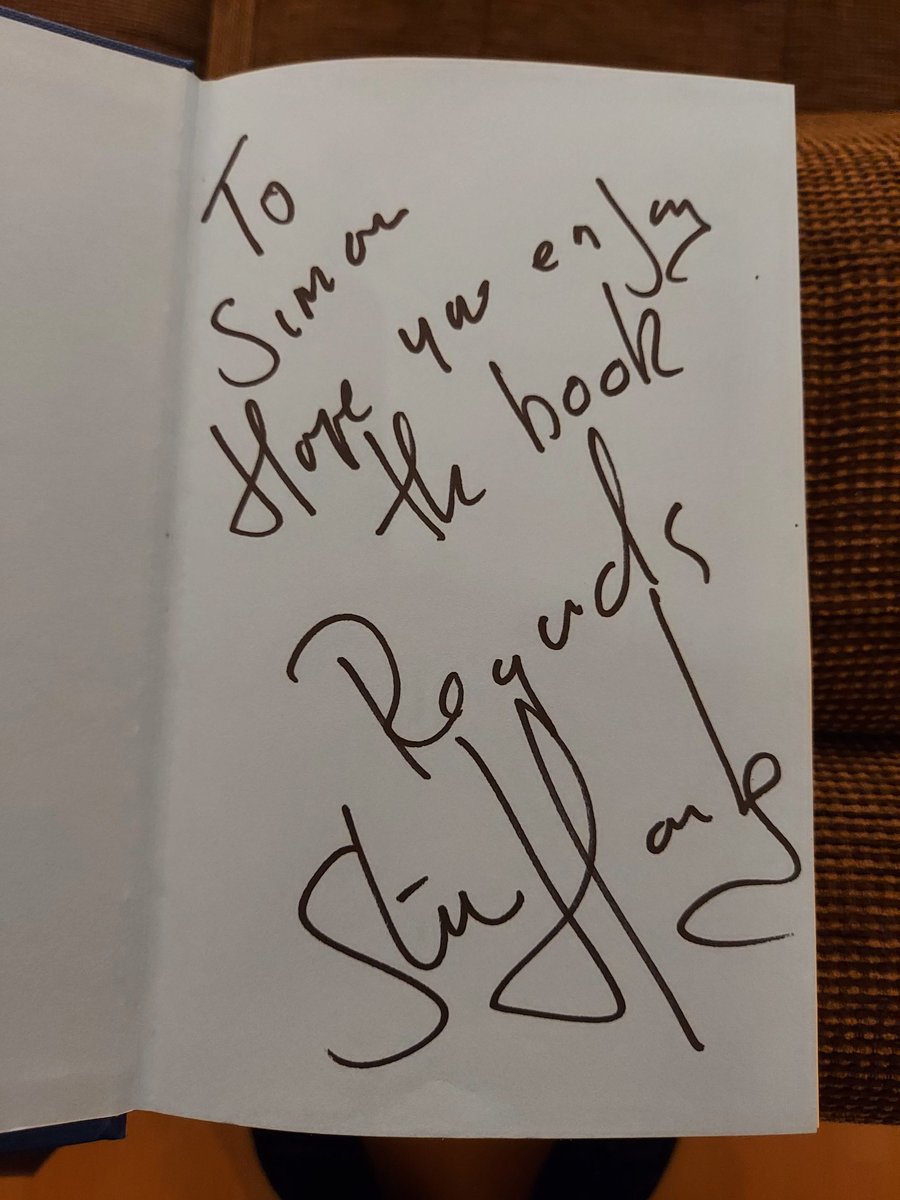 To
Simon
Hope you enjoy
the book
Regards
Stu